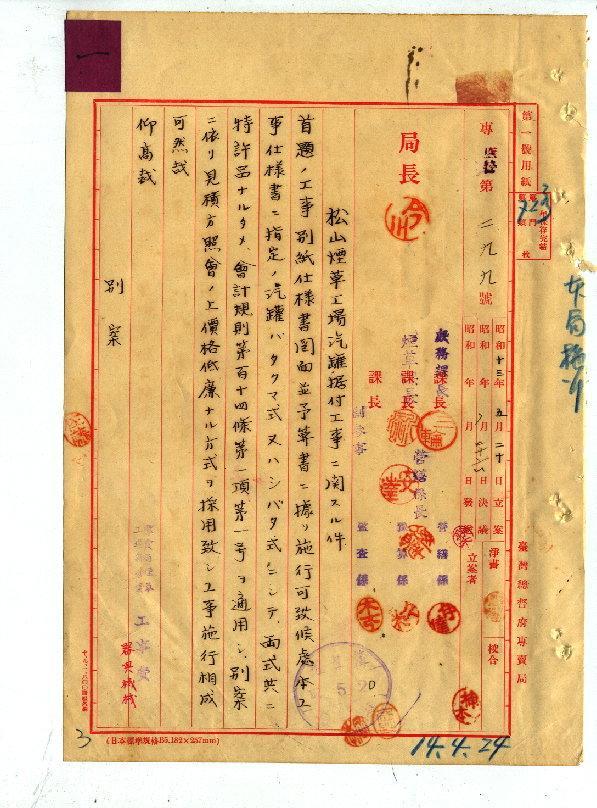 第一號用紙
專賣 第二九九號
昭和十三年五月二十日立案
昭和 年 月 日決議
昭和 年 月 日發
淨書
校合
立案者
臺灣總督府專賣局
局長
庶務課長
煙草課長
課長
營繕係長
監査係
松山煙草工場汽罐据付工事ニ関スル件
首題ノ工事別紙仕様書圖面並予算書ニ據リ施行可致候處本工
事仕様書ニ指定ノ汽罐ハタクマ式又ハシバタ式ニシテ両式共ニ
特許品ナルタメ會計規則第百十四條第一項第一号ヲ適用シ別案
ニ依リ見積方照會ノ上價格低廉ナル方式ヲ採用致シ工事施行相成
可然哉
仰高裁
別案
工事費
器具機械
(日本標準規格B5.182×257mm)
14.4.24
3
一